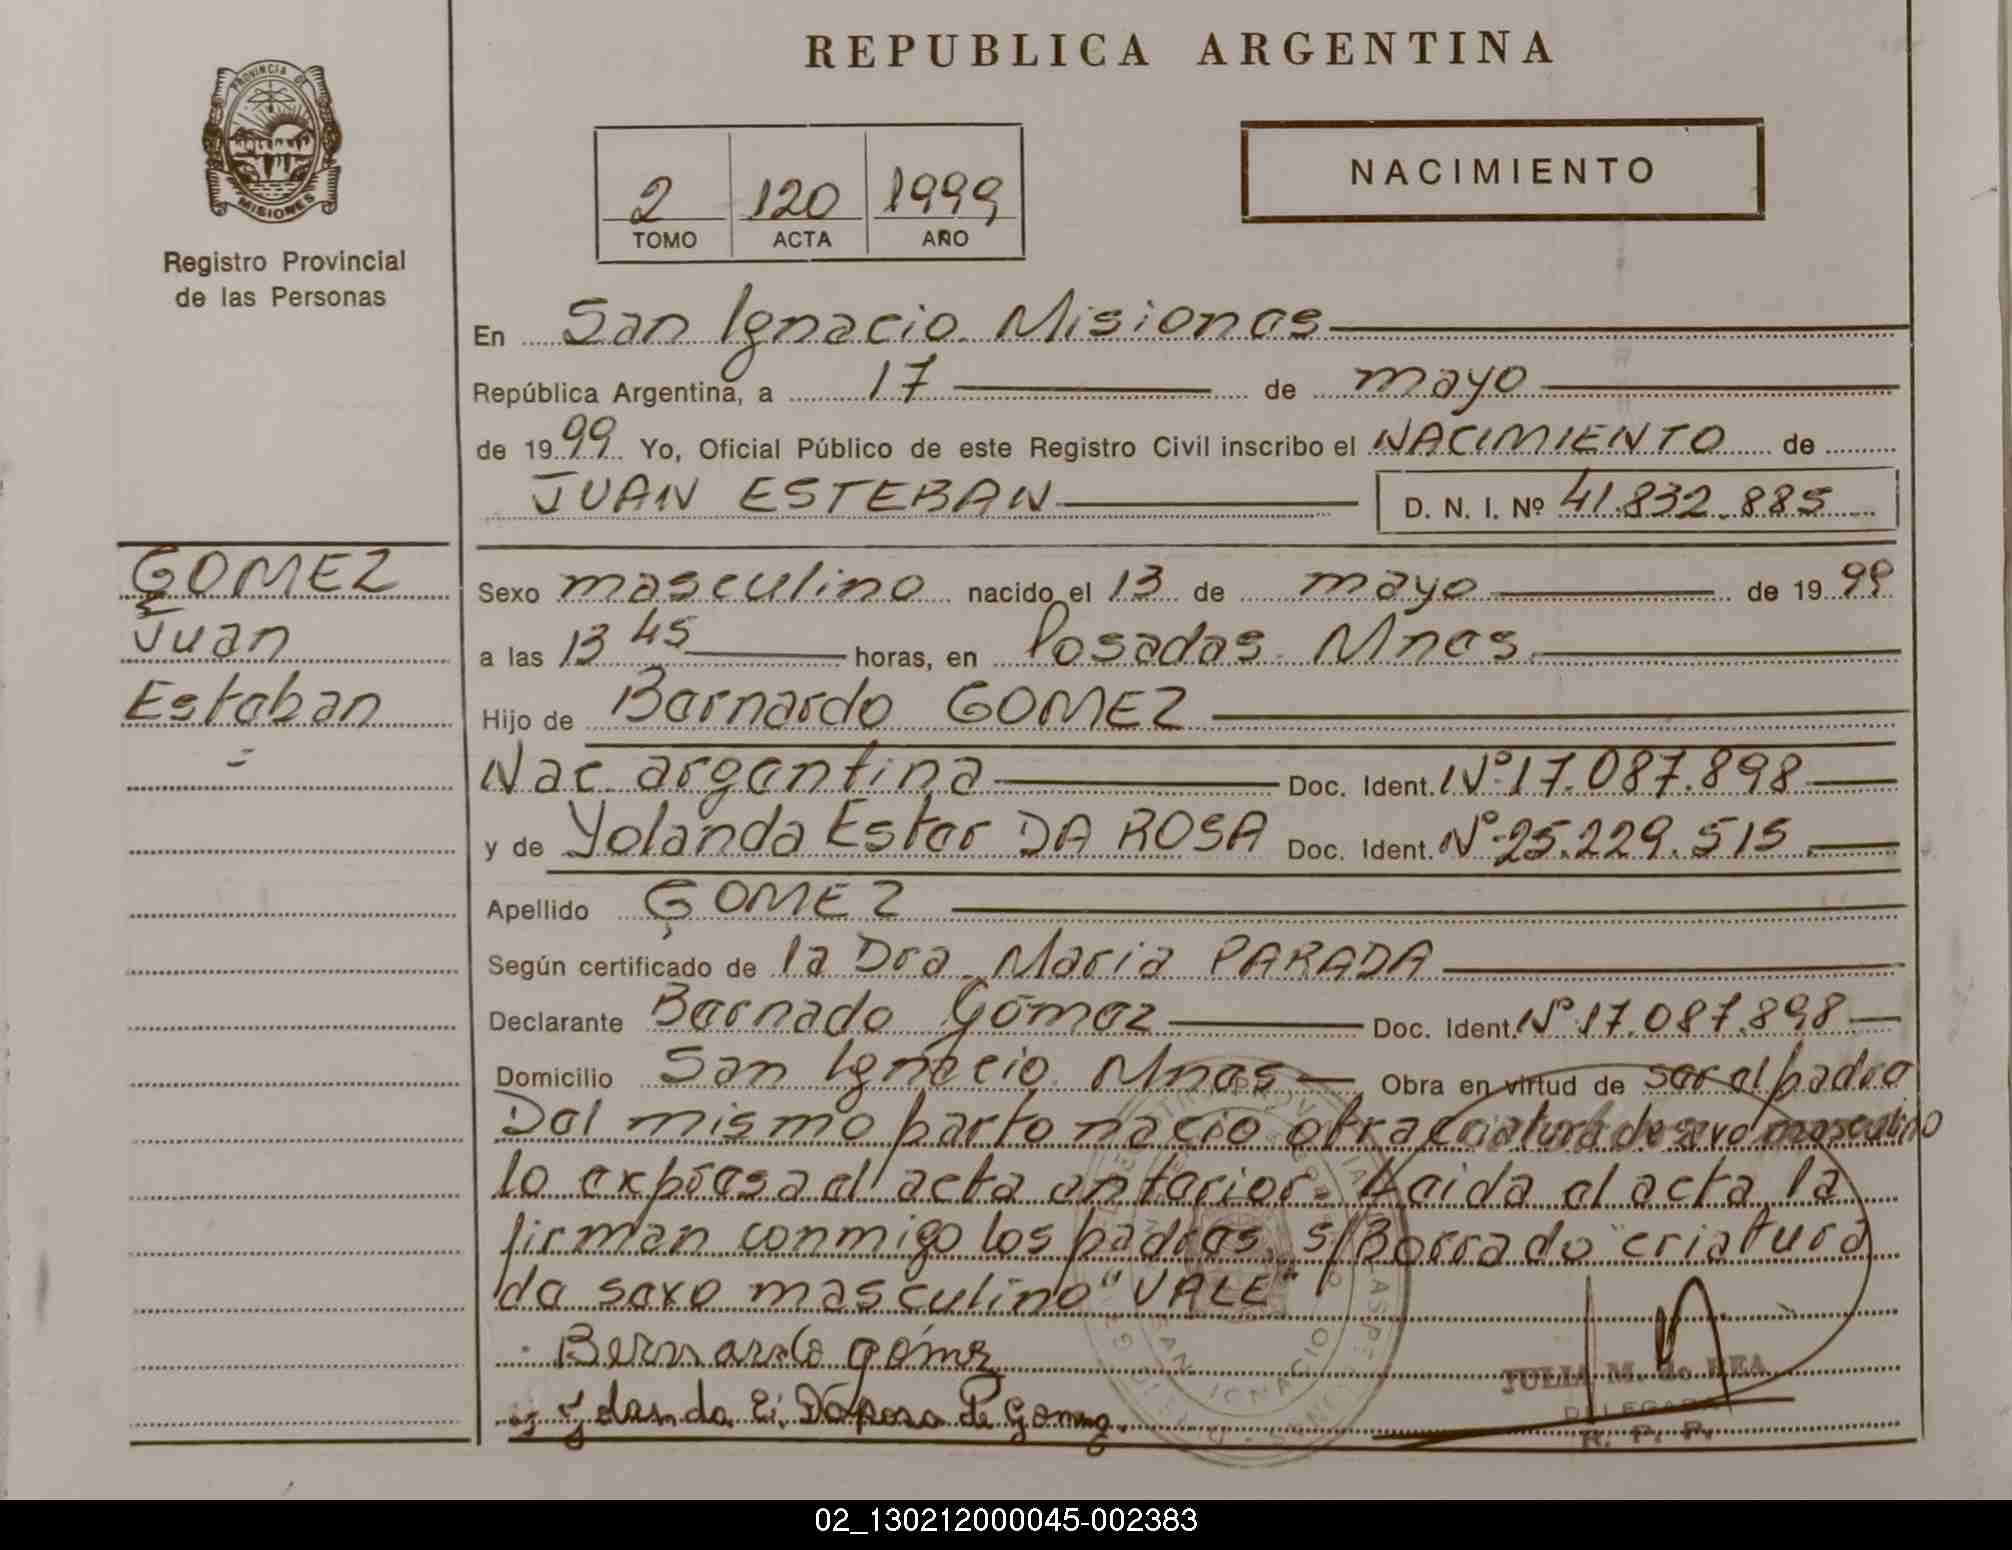 REPUBLICA ARGENTINA
PROVINCIA DE
MISIONES
Registro Provincial
de las Personas
2 120 1999
TOMO ACTA AÑO
NACIMIENTO
En San Ignacio Misiones
República Argentina, a 17 de mayo
de 1999 Yo, Oficial Público de este Registro Civil inscribo el NACIMIENTO de
JUAN ESTEBAN D. N. I. Nº 41.832.885
GOMEZ
Juan
Esteban
Sexo masculino nacido el 13 de mayo de 1999
a las 13 45 horas, en Posadas Mnes
Hijo de Bernardo GOMEZ
Nac argentina Doc. Ident. Nº 17.087.898
y de Yolanda Ester DA ROSA Doc. Ident. Nº 25.229.515
Apellido GOMEZ
Según certificado de la Dra Maria PARADA
Declarante Bernado Gómez Doc. Ident. Nº 17.087.898
Domicilio San Ignacio Mnes Obra en virtud de ser el padre
Del mismo parto nacio otra criatura de sexo masculino
lo expresa el acta anterior. Leida el acta la
firman conmigo los padres. s/Borrado "criatura
de sexo masculino" VALE"
Bernardo gómez
Yolanda E. Darosa de Gomez.
JULIA M. de REA
DELEGADA
R. P. P.
SAN IGNACIO
02_130212000045-002383